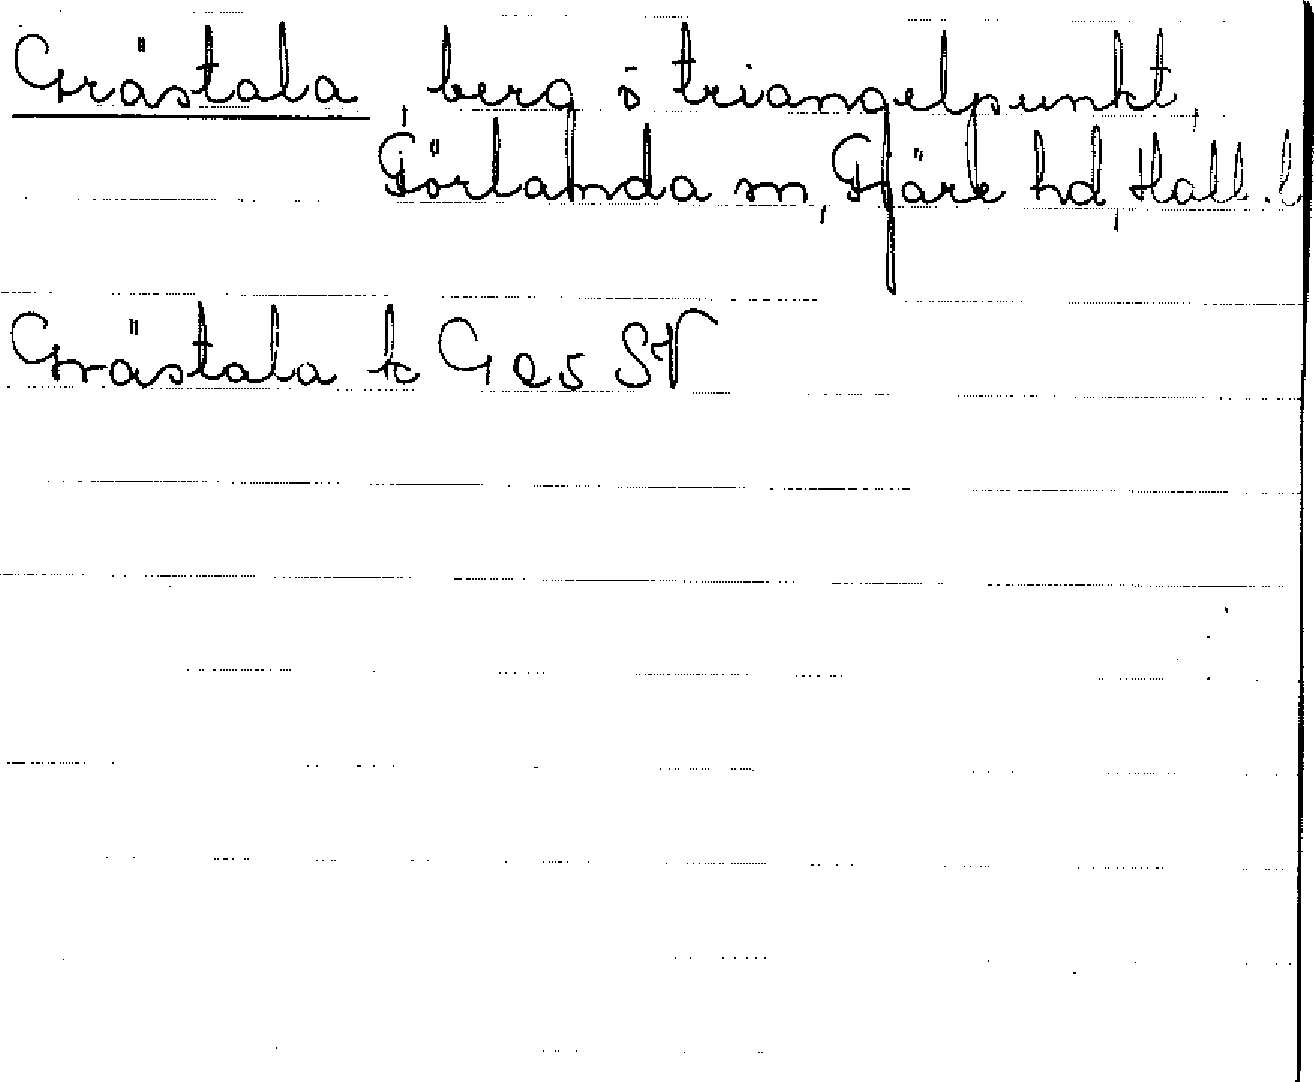 Grästala, berg o triangelpunkt,
Förlanda sn, Fjäre hd, Hall. l
Grästala tc G e5 SV